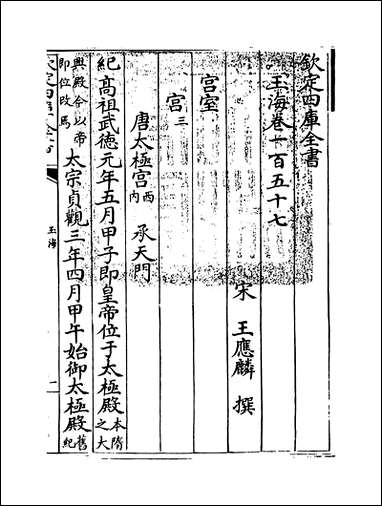 欽定四庫全書
玉海卷一百五十七
宋 王應麟 撰
宮室
宮三
唐太極宮西內 承天門
紀高祖武德元年五月甲子即皇帝位于太極殿本隋之大
興殿令以帝即位改焉 太宗貞觀三年四月甲午始御太極殿舊紀
玉海
二